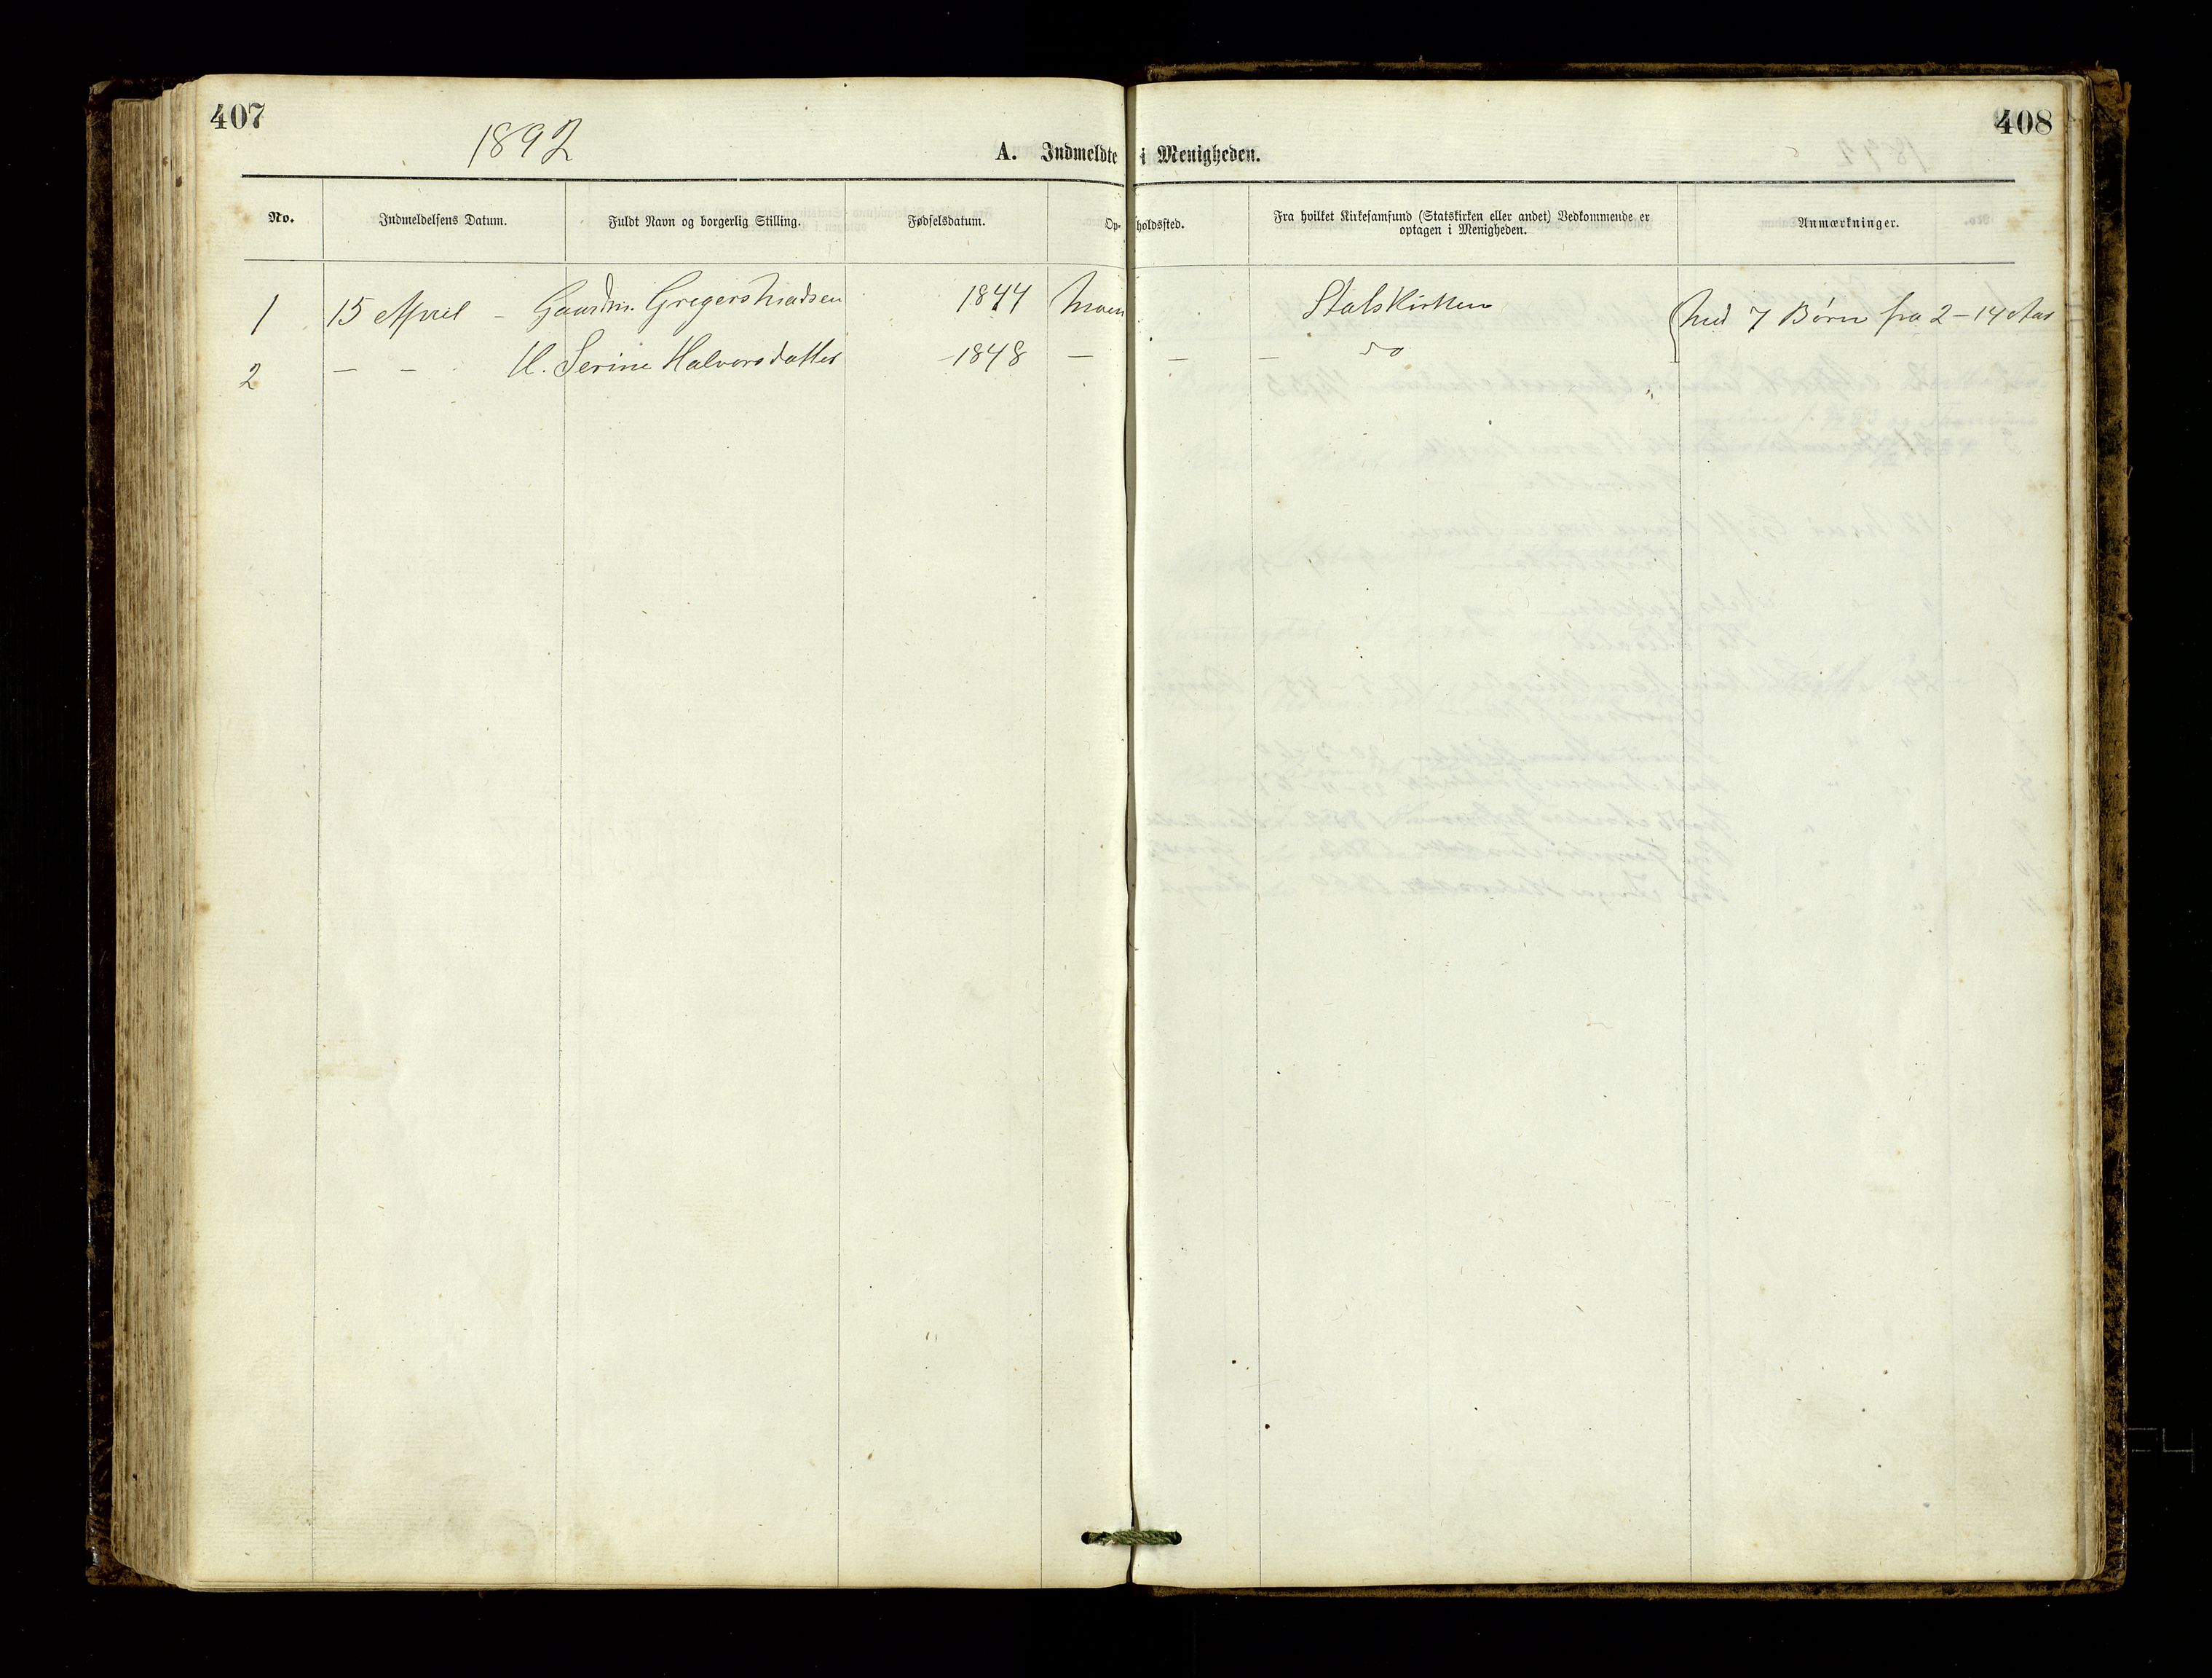 407
408
1892
A. Indmeldte i Menigheden.
No. Indmeldelsens Datum. Fuldt Navn og borgerlig Stilling. Fødselsdatum. Op- holdssted. Fra hvilket Kirkesamfund (Statskirken eller andet) Vedkommende er optagen i Menigheden. Anmærkninger.
1 15 April - Gaardm. Gregers Madsen 1844 Moen Statskirken Med 7 Børn fra 2-14 Aar
2 - - H. Serine Halvorsdatter 1848 - - - do